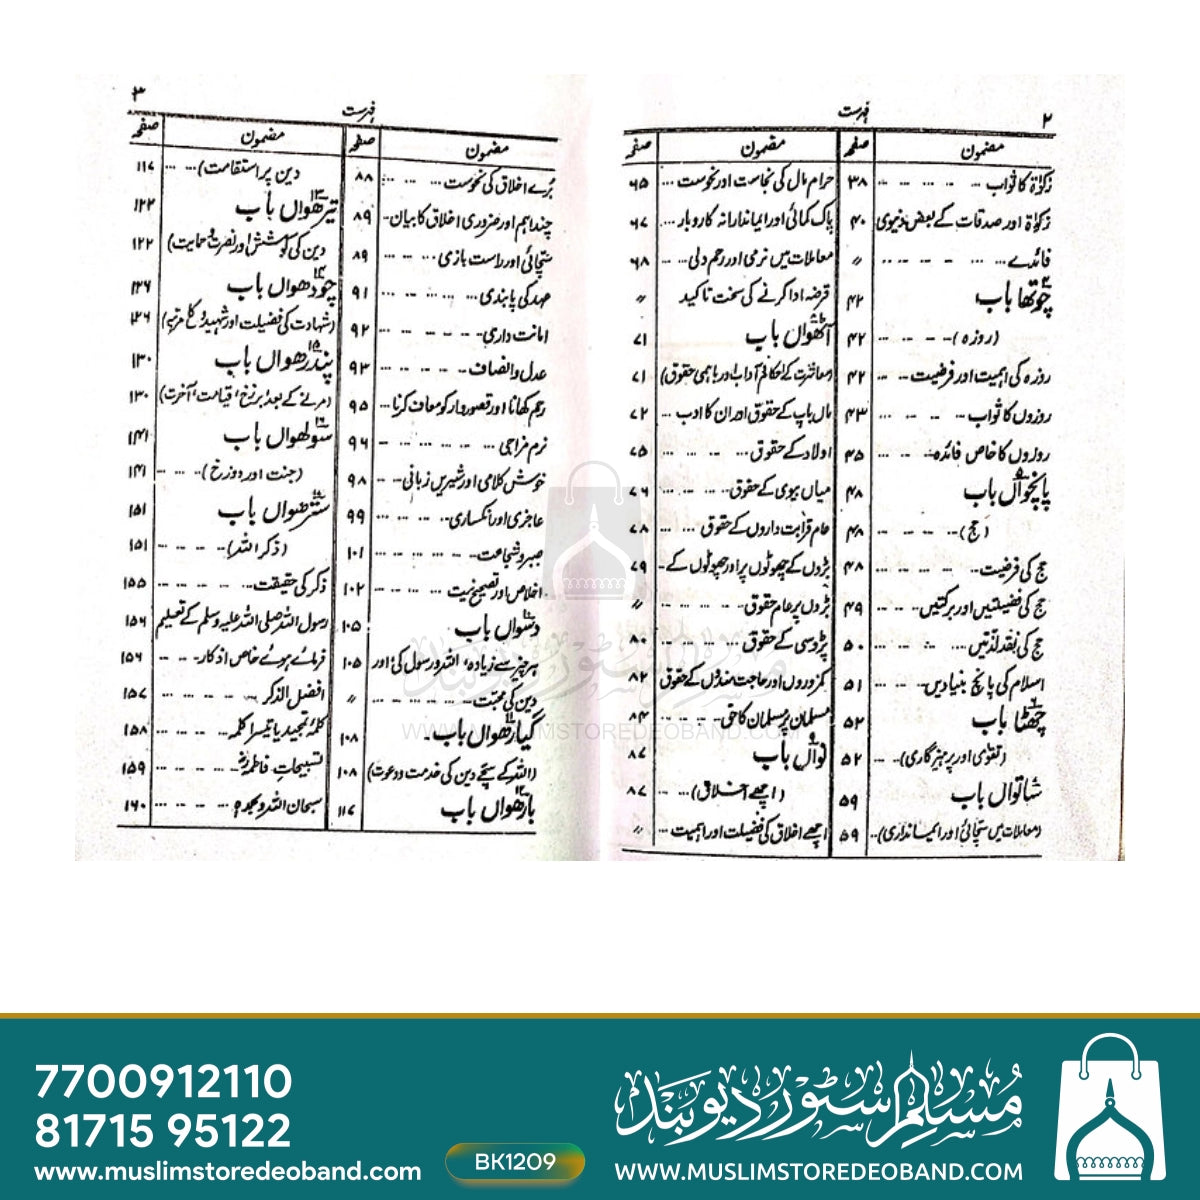 ۲
فہرست
مضمون صفحہ
زکوٰۃ کا ثواب ۳۸
زکوٰۃ اور صدقات کے بعض دنیوی ۴۰
فائدے 〃
چوتھا باب ۴۲
(روزہ) ۴۲
روزہ کی اہمیت اور فرضیت ۴۲
روزوں کا ثواب ۴۳
روزوں کا خاص فائدہ ۴۵
پانچواں باب ۴۸
(حج) ۴۸
حج کی فرضیت ۴۸
حج کی فضیلتیں اور برکتیں ۴۹
حج کی نقد لذتیں ۵۰
اسلام کی پانچ بنیادیں ۵۱
چھٹا باب ۵۲
(تقویٰ اور پرہیزگاری) ۵۲
ساتواں باب ۵۹
(معاملات میں سچائی اور ایمانداری) ۵۹
مضمون صفحہ
حرام مال کی نجاست اور نحوست ۶۵
پاک کمائی اور ایماندارانہ کاروبار ۶۷
معاملات میں نرمی اور رحم دلی ۶۸
قرضہ ادا کرنے کی سخت تاکید 〃
آٹھواں باب ۷۱
(معاشرت کے احکام آداب اور باہمی حقوق) ۷۱
ماں باپ کے حقوق اور ان کا ادب ۷۲
اولاد کے حقوق ۷۵
میاں بیوی کے حقوق ۷۶
عام قرابت داروں کے حقوق ۷۸
بڑوں کے چھوٹوں پر اور چھوٹوں کے ۷۹
بڑوں پر عام حقوق 〃
پڑوسی کے حقوق ۸۰
کمزوروں اور حاجت مندوں کے حقوق ۸۲
مسلمان پر مسلمان کا حق ۸۴
نواں باب ۸۷
(اچھے اخلاق) ۸۷
اچھے اخلاق کی فضیلت اور اہمیت 〃
۳
فہرست
مضمون صفحہ
بُرے اخلاق کی نحوست ۸۸
چند اہم اور ضروری اخلاق کا بیان ۸۹
سچائی اور راست بازی ۸۹
عہد کی پابندی ۹۱
امانت داری ۹۲
عدل و انصاف ۹۳
رحم کھانا اور قصوروار کو معاف کرنا ۹۵
نرم مزاجی ۹۶
خوش کلامی اور شیریں زبانی ۹۸
عاجزی اور انکساری ۹۹
صبر و شجاعت ۱۰۱
اخلاص اور تصحیح نیت ۱۰۲
دسواں باب ۱۰۵
ہر چیز سے زیادہ، اللہ و رسول کی اور ۱۰۵
دین کی محبت 〃
گیارھواں باب ۱۰۸
(اللہ کے سچے دین کی خدمت و دعوت) ۱۰۸
بارھواں باب ۱۱۷
مضمون صفحہ
دین پر استقامت) ۱۱۷
تیرھواں باب ۱۲۲
دین کی کوشش اور نصرت و حمایت) ۱۲۲
چودھواں باب ۱۲۶
(شہادت کی فضیلت اور شہیدوں کا مرتبہ) ۱۲۶
پندرھواں باب ۱۳۰
(مرنے کے بعد، برزخ، قیامت، آخرت) ۱۳۰
سولھواں باب ۱۴۱
(جنت اور دوزخ) ۱۴۱
سترھواں باب ۱۵۱
(ذکر اللہ) ۱۵۱
ذکر کی حقیقت ۱۵۵
رسول اللہ صلی اللہ علیہ وسلم کے تعلیم ۱۵۶
فرمائے ہوئے خاص اذکار ۱۵۶
افضل الذکر ۱۵۷
کلمۂ تمجید یا تیسرا کلمہ ۱۵۸
تسبیحات فاطمہ ۱۵۹
سبحان اللہ و بحمدہ ۱۶۰
مسلم سٹور دیوبند
WWW.MUSLIMSTOREDEOBAND.COM
7700912110
81715 95122
www.muslimstoredeoband.com
BK1209
مسلم سٹور دیوبند
WWW.MUSLIMSTOREDEOBAND.COM